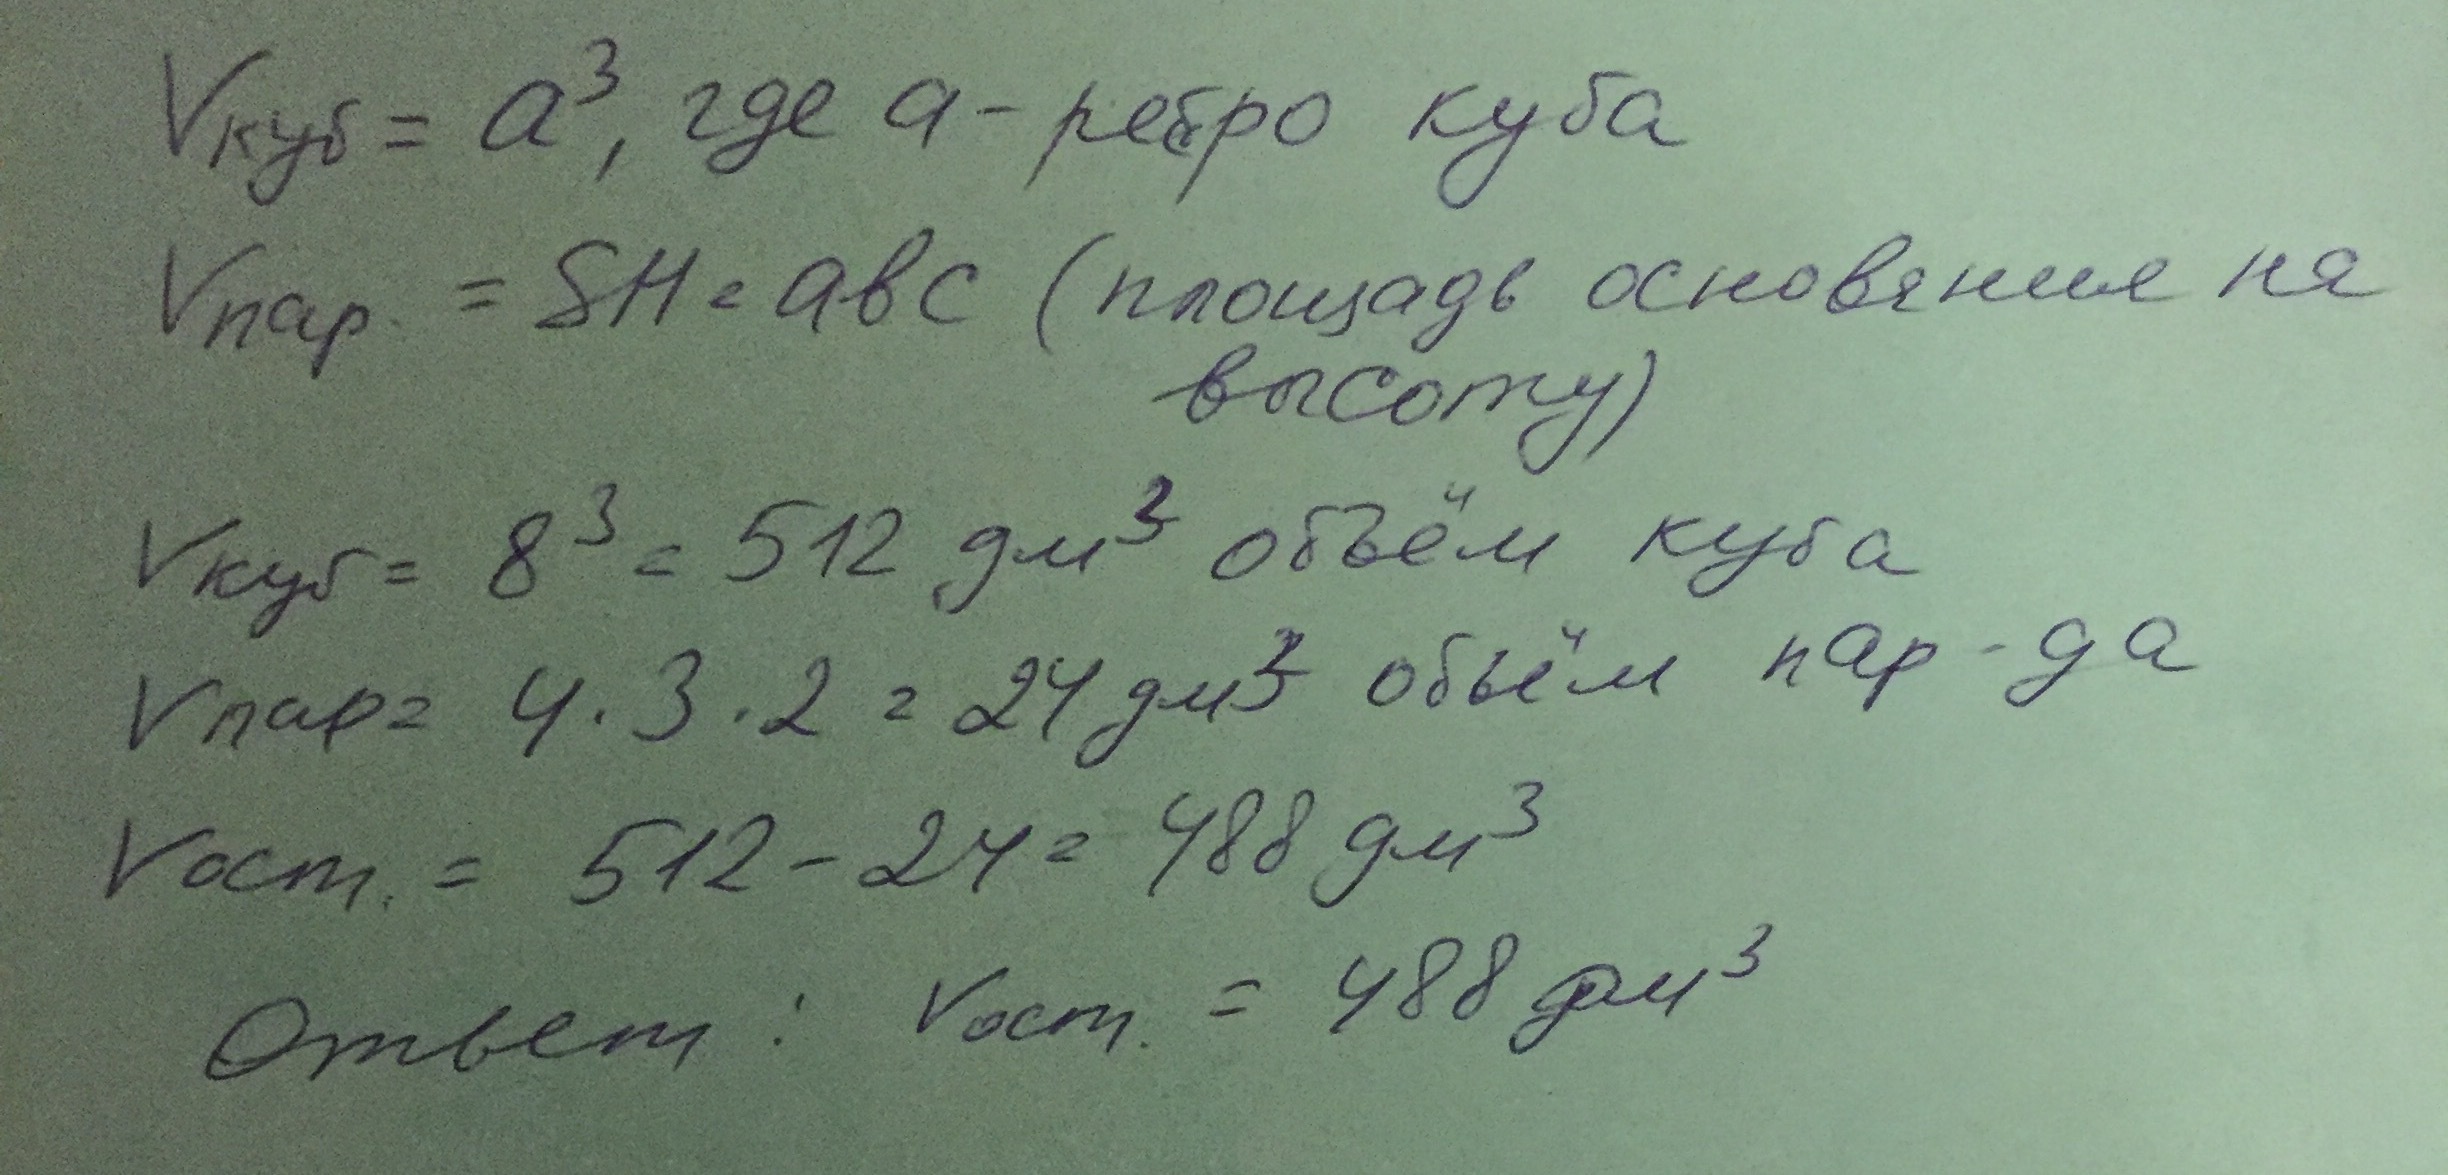 Vкуб = a³, где a - ребро куба
Vпар. = SH = abc (площадь основания на
высоту)
Vкуб = 8³ = 512 дм³ объём куба
Vпар = 4 · 3 · 2 = 24 дм³ объём пар-да
Vост. = 512 - 24 = 488 дм³
Ответ: Vост. = 488 дм³